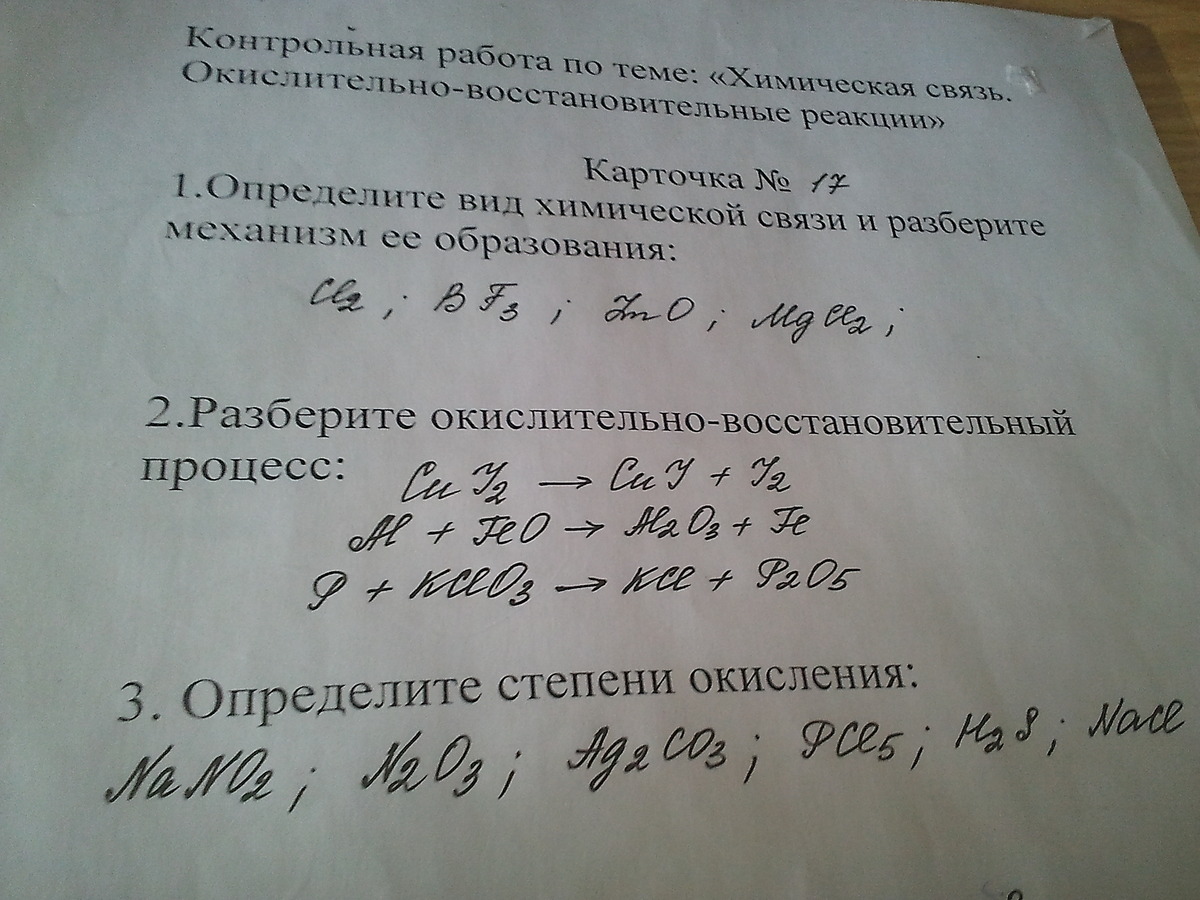 Контрольная работа по теме: «Химическая связь.
Окислительно-восстановительные реакции»
Карточка № 17
1.Определите вид химической связи и разберите
механизм ее образования:
Cl2 ; BF3 ; ZnO ; MgCl2 ;
2.Разберите окислительно-восстановительный
процесс: CuJ2 → CuJ + J2
Al + FeO → Al2O3 + Fe
P + KClO3 → KCl + P2O5
3. Определите степени окисления:
NaNO2 ; N2O3 ; Ag2CO3 ; PCl5 ; H2S ; NaCl